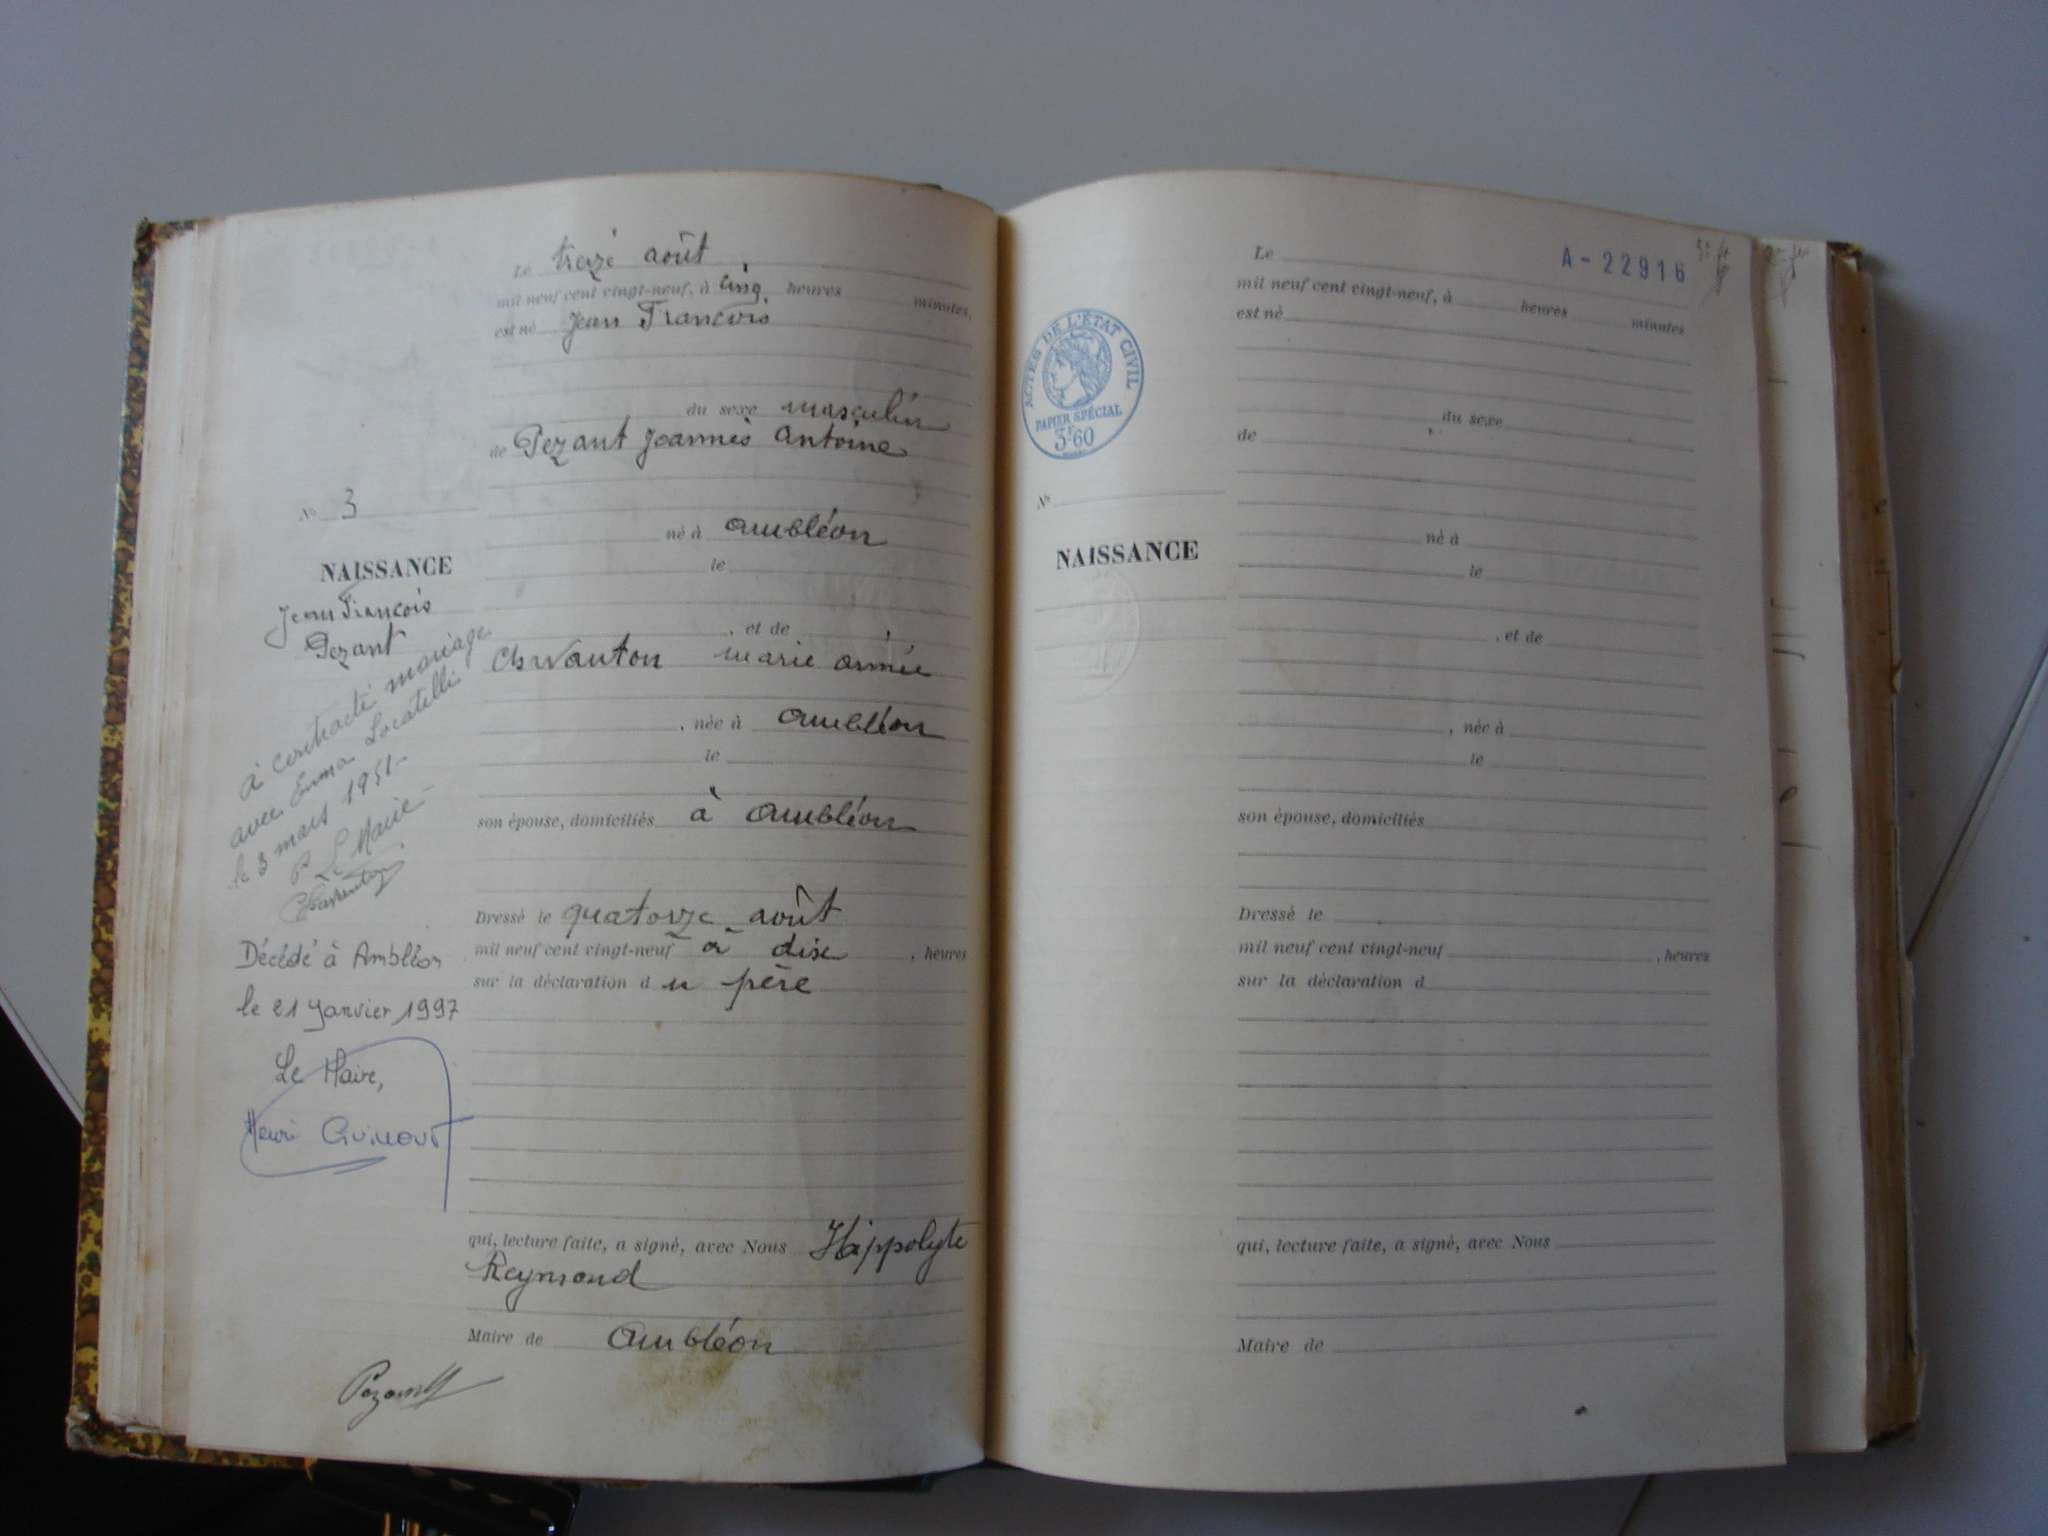 Le treize août
mil neuf cent vingt-neuf, à cinq heures minutes,
est né Jean François
du sexe masculin
de Pezant Joannès Antoine
né à Ambléon
le
, et de
Marie
, née à Ambléon
le
son épouse, domiciliés à Ambléon
Dressé le quatorze août
mil neuf cent vingt-neuf à dix , heures
sur la déclaration du père
qui, lecture faite, a signé, avec Nous Hippolyte
Reymond
Maire de Ambléon
Nº 3
NAISSANCE
Jean François
Pezant
à contracté mariage
avec Locatelli
le 3 mars 1951-
P Le Maire-
Décédé à Ambléon
le 21 Janvier 1997
Le Maire,
Henri
Pezant
A-22916
ACTES DE L'ÉTAT CIVIL
PAPIER SPÉCIAL
3F60
Nº
NAISSANCE
Le
mil neuf cent vingt-neuf, à heures minutes
est né
du sexe
de
né à
le
, et de
, née à
le
son épouse, domiciliés
Dressé le
mil neuf cent vingt-neuf , heures
sur la déclaration d
qui, lecture faite, a signé, avec Nous
Maire de